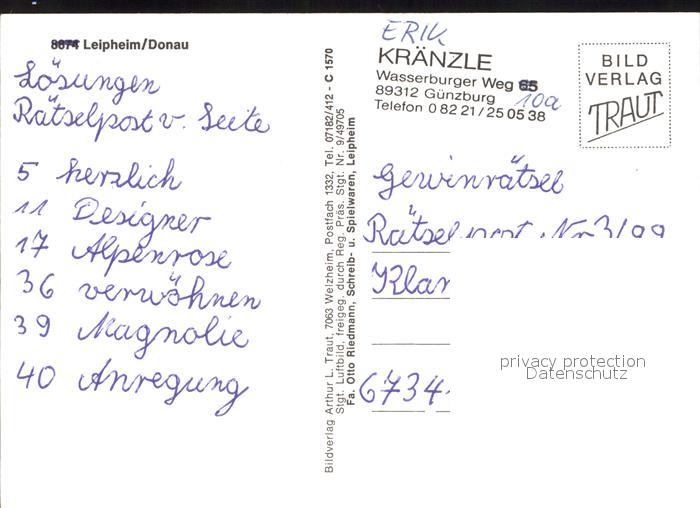 8874 Leipheim/Donau
Lösungen
Rätselpost v. Seite
5 herzlich
11 Designer
17 Alpenrose
36 verwöhnen
39 Magnolie
40 Anregung
Bildverlag Arthur L. Traut, 7063 Welzheim, Postfach 1332, Tel. 07182/412 - C 1570
Stgt. Luftbild, freigeg. durch Reg. Präs. Stgt. Nr. 9/49705
Fa. Otto Riedmann, Schreib- u. Spielwaren, Leipheim
ERIK
KRÄNZLE
Wasserburger Weg 65 10a
89312 Günzburg
Telefon 0 82 21/25 05 38
BILD
VERLAG
TRAUT
Gewinrätsel
Rätselpost Nr 3/99
Klar
6734
privacy protection
Datenschutz